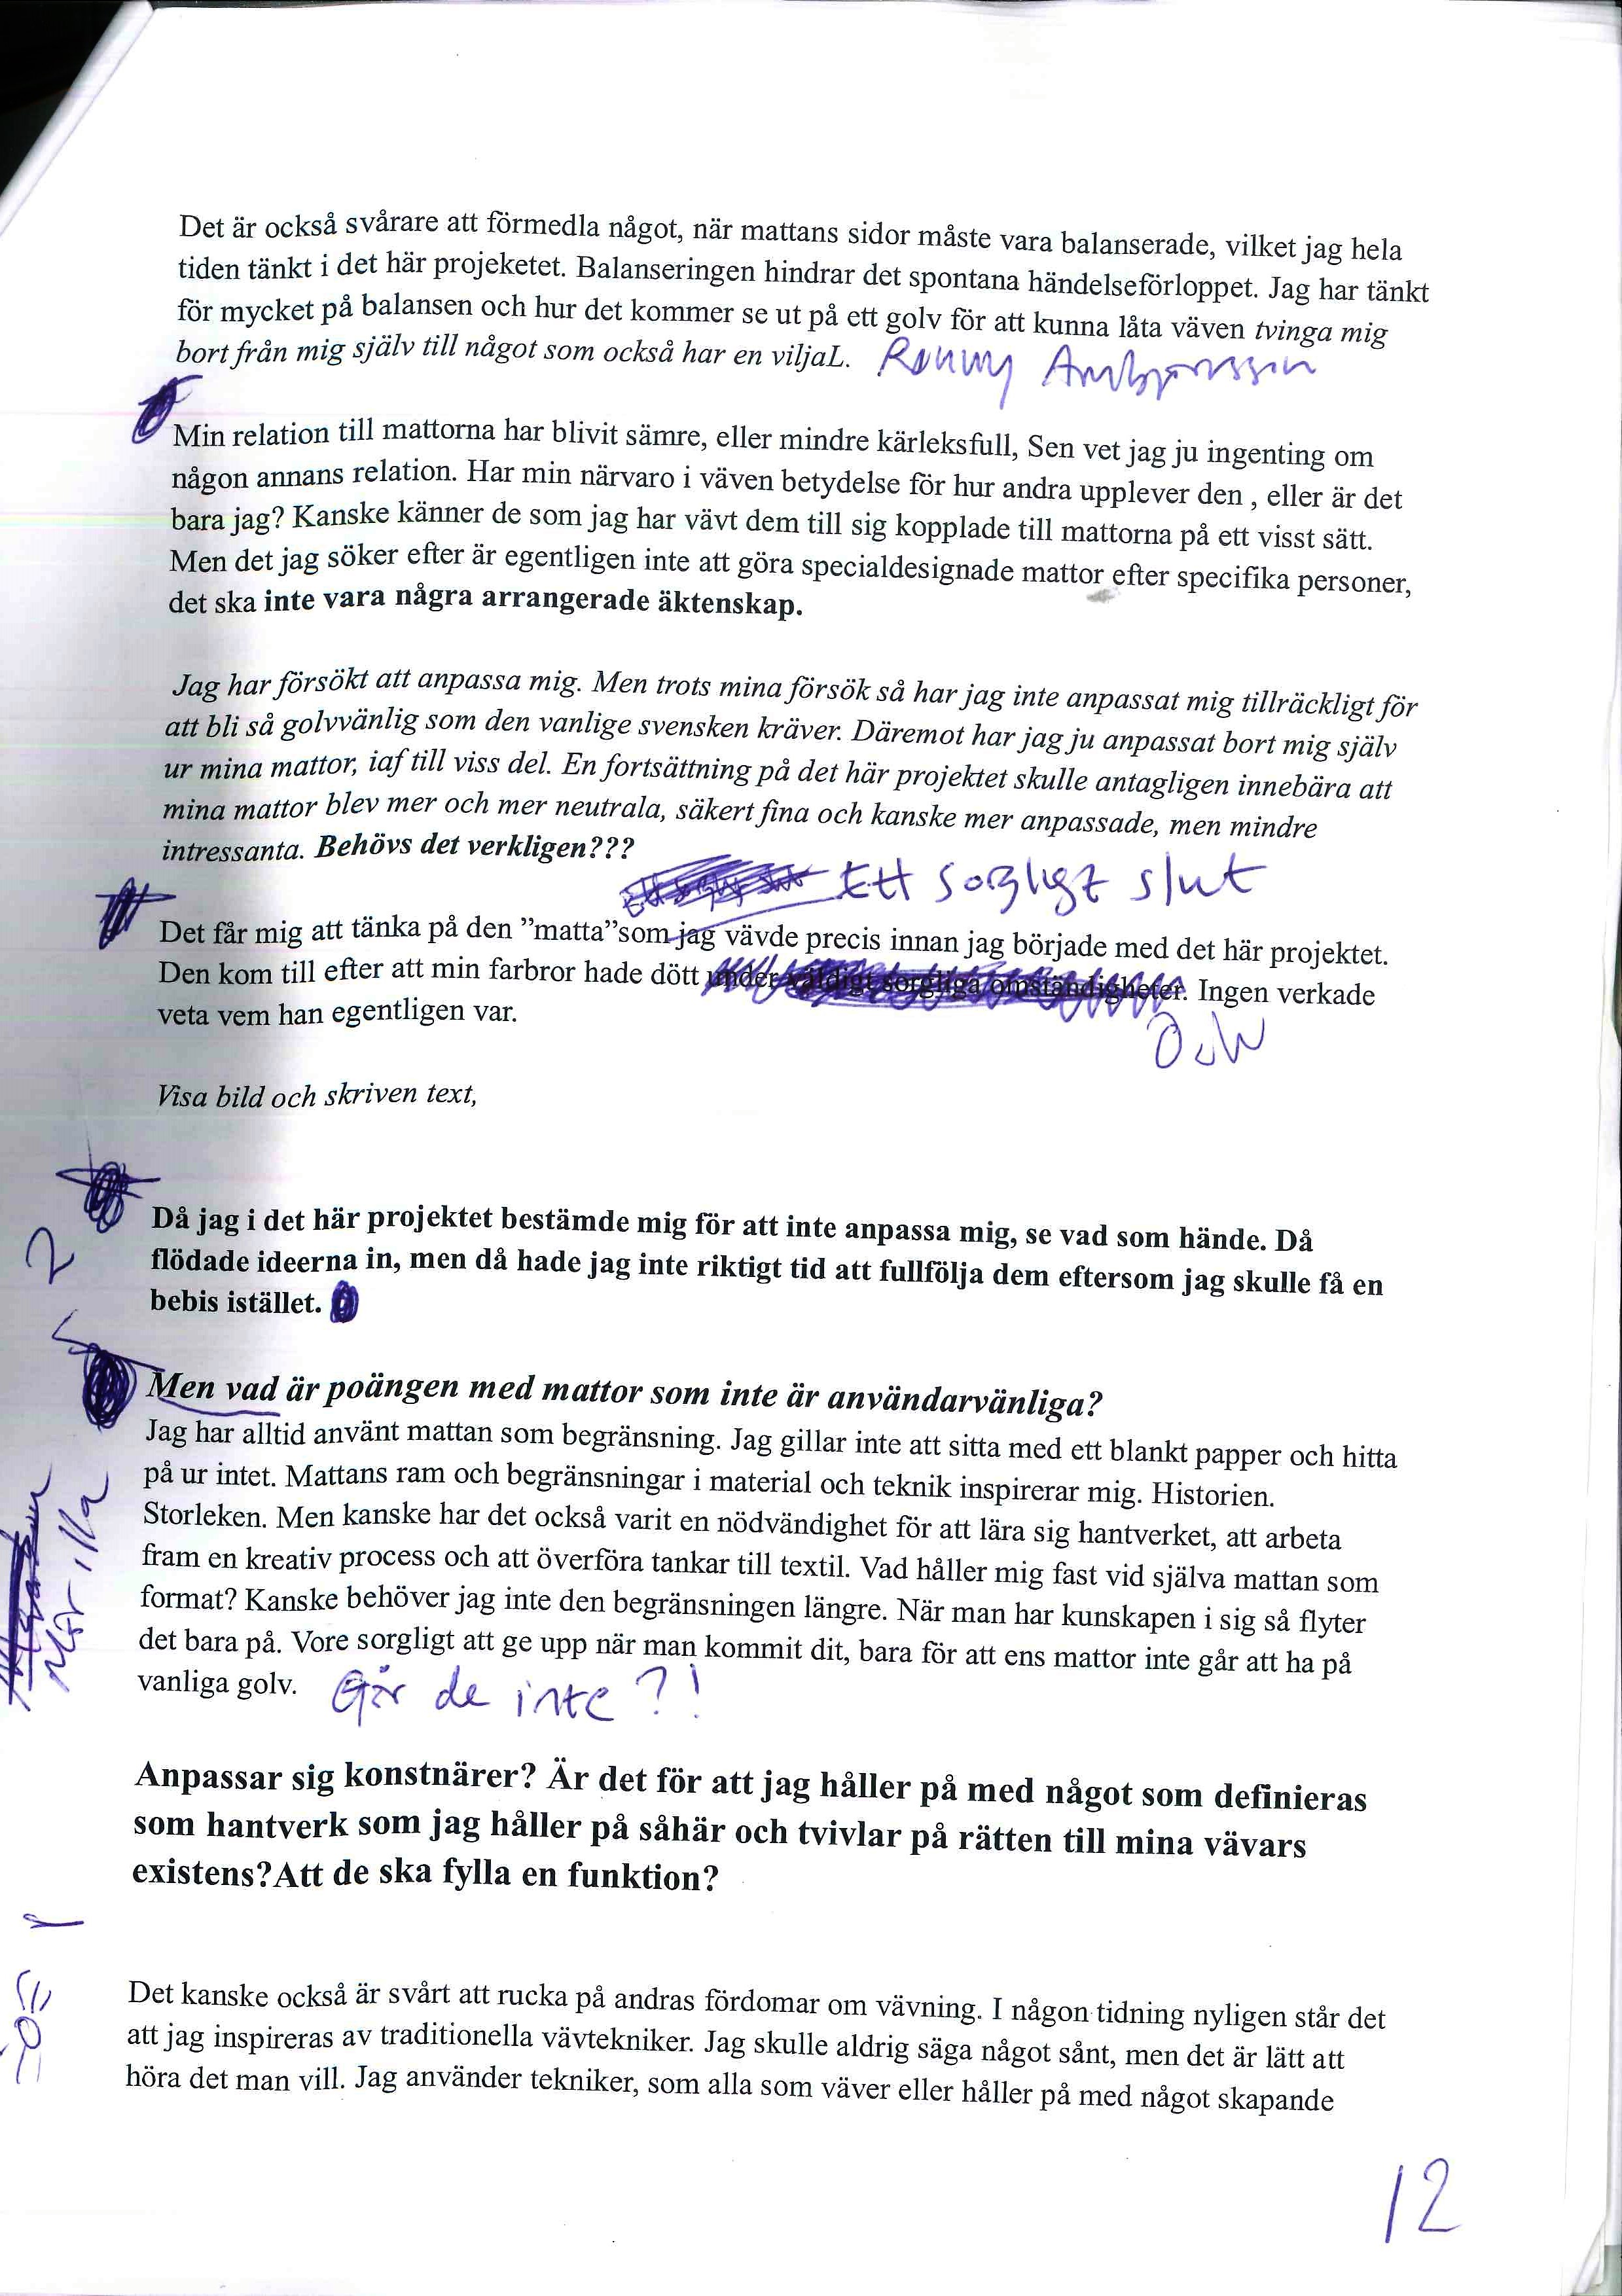 Det är också svårare att förmedla något, när mattans sidor måste vara balanserade, vilket jag hela
tiden tänkt i det här projeketet. Balanseringen hindrar det spontana händelseförloppet. Jag har tänkt
för mycket på balansen och hur det kommer se ut på ett golv för att kunna låta väven tvinga mig
bort från mig själv till något som också har en viljaL. Ronny Ambjörnsson
Min relation till mattorna har blivit sämre, eller mindre kärleksfull, Sen vet jag ju ingenting om
någon annans relation. Har min närvaro i väven betydelse för hur andra upplever den , eller är det
bara jag? Kanske känner de som jag har vävt dem till sig kopplade till mattorna på ett visst sätt.
Men det jag söker efter är egentligen inte att göra specialdesignade mattor efter specifika personer,
det ska inte vara några arrangerade äktenskap.
Jag har försökt att anpassa mig. Men trots mina försök så har jag inte anpassat mig tillräckligt för
att bli så golvvänlig som den vanlige svensken kräver. Däremot har jag ju anpassat bort mig själv
ur mina mattor, iaf till viss del. En fortsättning på det här projektet skulle antagligen innebära att
mina mattor blev mer och mer neutrala, säkert fina och kanske mer anpassade, men mindre
intressanta. Behövs det verkligen???
Ett sorgligt slut Ett sorgligt slut
Det får mig att tänka på den ”matta”som jag vävde precis innan jag började med det här projektet.
Den kom till efter att min farbror hade dött under väldigt sorgliga omständigheter. Ingen verkade
veta vem han egentligen var.
Och
Visa bild och skriven text,
2
Då jag i det här projektet bestämde mig för att inte anpassa mig, se vad som hände. Då
flödade ideerna in, men då hade jag inte riktigt tid att fullfölja dem eftersom jag skulle få en
bebis istället.
Men vad är poängen med mattor som inte är användarvänliga?
Jag har alltid använt mattan som begränsning. Jag gillar inte att sitta med ett blankt papper och hitta
på ur intet. Mattans ram och begränsningar i material och teknik inspirerar mig. Historien.
Storleken. Men kanske har det också varit en nödvändighet för att lära sig hantverket, att arbeta
fram en kreativ process och att överföra tankar till textil. Vad håller mig fast vid själva mattan som
format? Kanske behöver jag inte den begränsningen längre. När man har kunskapen i sig så flyter
det bara på. Vore sorgligt att ge upp när man kommit dit, bara för att ens mattor inte går att ha på
vanliga golv. Går de inte?!
Mår illa
Anpassar sig konstnärer? Är det för att jag håller på med något som definieras
som hantverk som jag håller på såhär och tvivlar på rätten till mina vävars
existens?Att de ska fylla en funktion?
Det kanske också är svårt att rucka på andras fördomar om vävning. I någon tidning nyligen står det
att jag inspireras av traditionella vävtekniker. Jag skulle aldrig säga något sånt, men det är lätt att
höra det man vill. Jag använder tekniker, som alla som väver eller håller på med något skapande
12